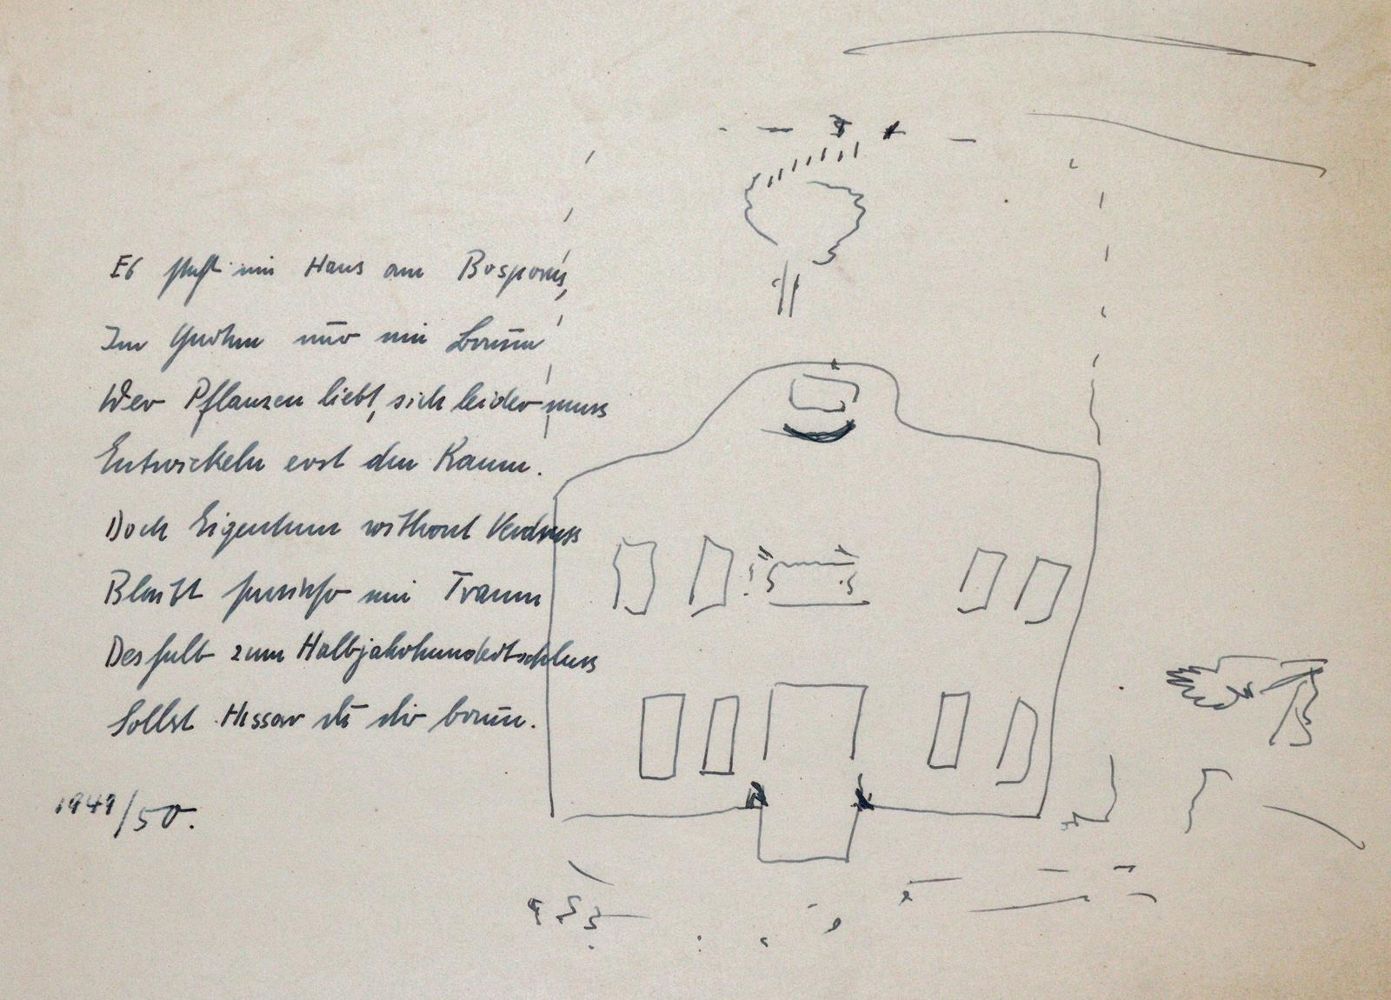 Es steht ein Haus am Bosporus,
Im Garten nur ein Baum
Wer Pflanzen liebt, sich leider muss
Entwickeln erst den Raum.
Doch Eigentum without Verdruss
Bleibt ein Traum
Deshalb zum Halbjahrhundertschluss
Sollst Hissar du dir baun.
1949/50.